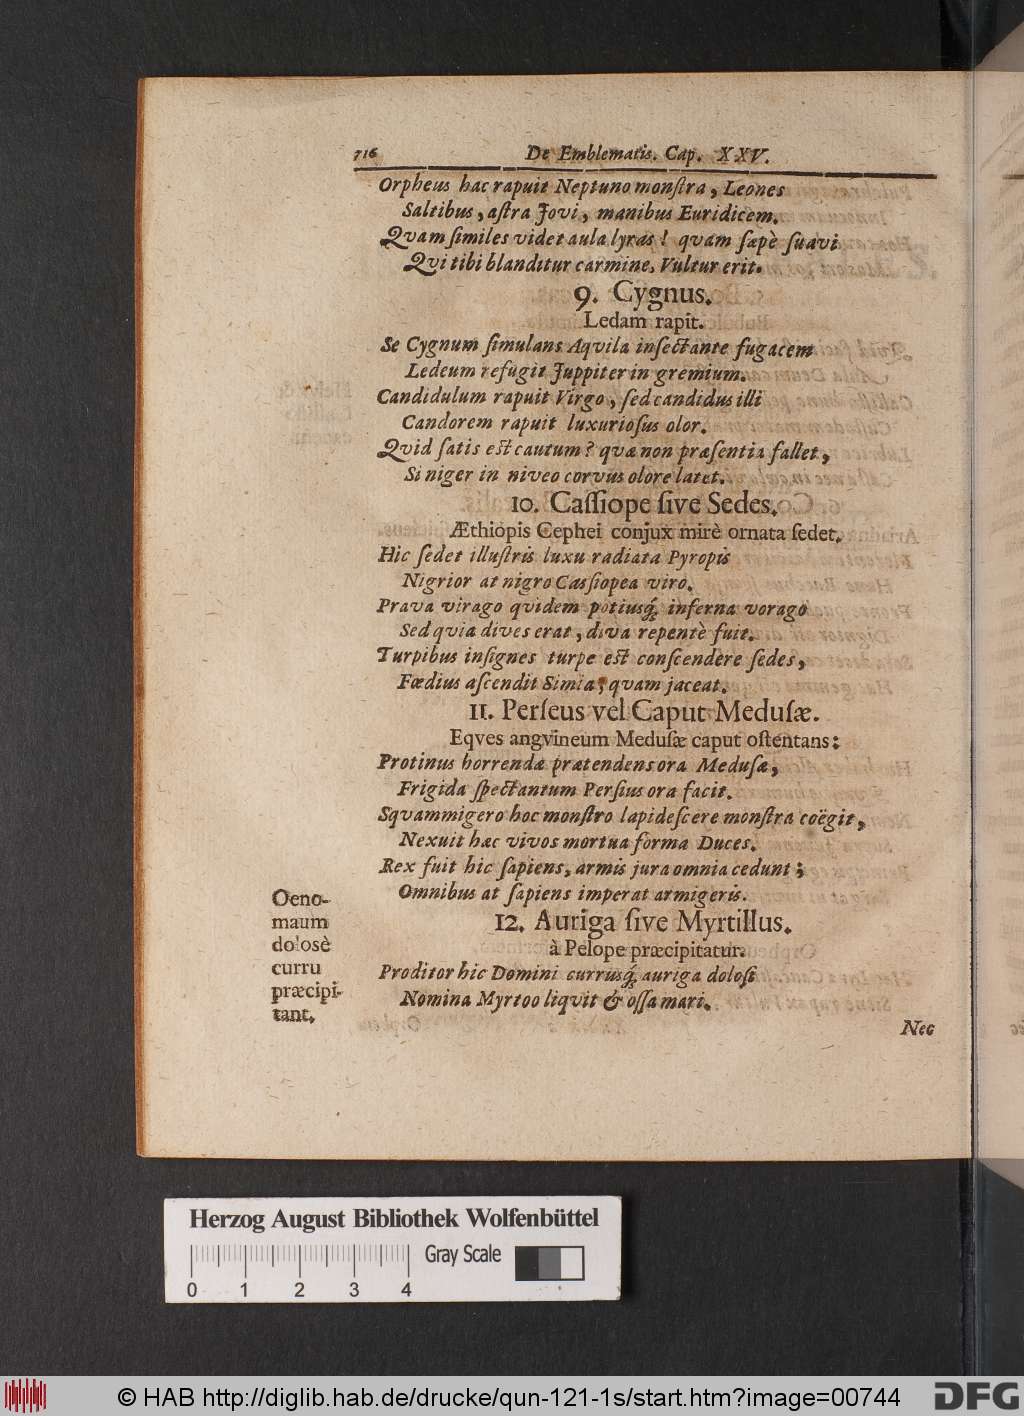 716 De Emblematis. Cap. XXV.
Orpheus hac rapuit Neptuno monſtra, Leones
Saltibus, aſtra Jovi, manibus Euridicem.
Qvam ſimiles videt aula lyras! qvam ſæpè ſuavi
Qvi tibi blanditur carmine, Vultur erit.
9. Cygnus.
Ledam rapit.
Se Cygnum ſimulans Aqvila inſectante fugacem
Ledeum refugit Juppiter in gremium.
Candidulum rapuit Virgo, ſed candidus illi
Candorem rapuit luxurioſus olor.
Qvid ſatis eſt cautum? qvæ non præſentia fallet,
Si niger in niveo corvus olore latet.
10. Caſſiope ſive Sedes.
Æthiopis Cephei conjux mirè ornata ſedet.
Hic ſedet illuſtris luxu radiata Pyropis
Nigrior at nigro Casſiopea viro.
Prava virago qvidem potiusq́; inferna vorago
Sed qvia dives erat, diva repentè fuit.
Turpibus inſignes turpe eſt conſcendere ſedes,
Fœdius aſcendit Simia, qvam jaceat.
11. Perſeus vel Caput Meduſæ.
Eqves angvineum Meduſæ caput oſtentans:
Protinus horrendæ prætendens ora Meduſæ,
Frigida ſpectantum Perſius ora facit.
Sqvammigero hoc monſtro lapideſcere monſtra coëgit,
Nexuit hæc vivos mortua forma Duces.
Rex fuit hic ſapiens, armis jura omnia cedunt;
Omnibus at ſapiens imperat armigeris.
12. Auriga ſive Myrtillus.
à Pelope præcipitatur.
Proditor hic Domini currusq́; auriga doloſi
Nomina Myrtoo liqvit & oſſa mari.
Oeno-
maum
dolosè
curru
præcipi-
tant.
Nec
Herzog August Bibliothek Wolfenbüttel
Gray Scale
0 1 2 3 4
© HAB http://diglib.hab.de/drucke/qun-121-1s/start.htm?image=00744
DFG